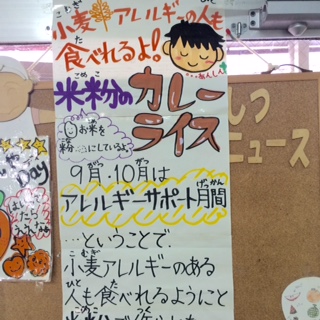 小麦アレルギーの人も
食べれるよ!
…あんしん
米粉の
カレー
ライス
お米を
粉にしているよ
9月・10月は
アレルギーサポート月間
…ということで、
小麦アレルギーのある
人も食べれるようにと
しつ
ニュース
Day